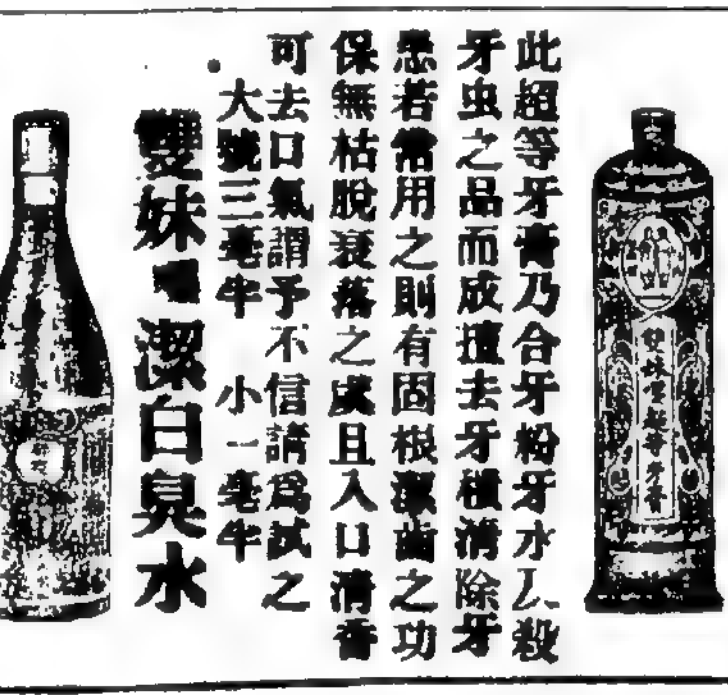 雙妹嘜超等牙膏
此超等牙膏乃合牙粉牙水及殺
牙虫之品而成擅去牙積清除牙
患若常用之則有固根潔齒之功
保無枯脫衰落之虞且入口清香
可去口氣謂予不信請爲試之
大號三毫半 小一毫半
雙妹嘜潔白臭水